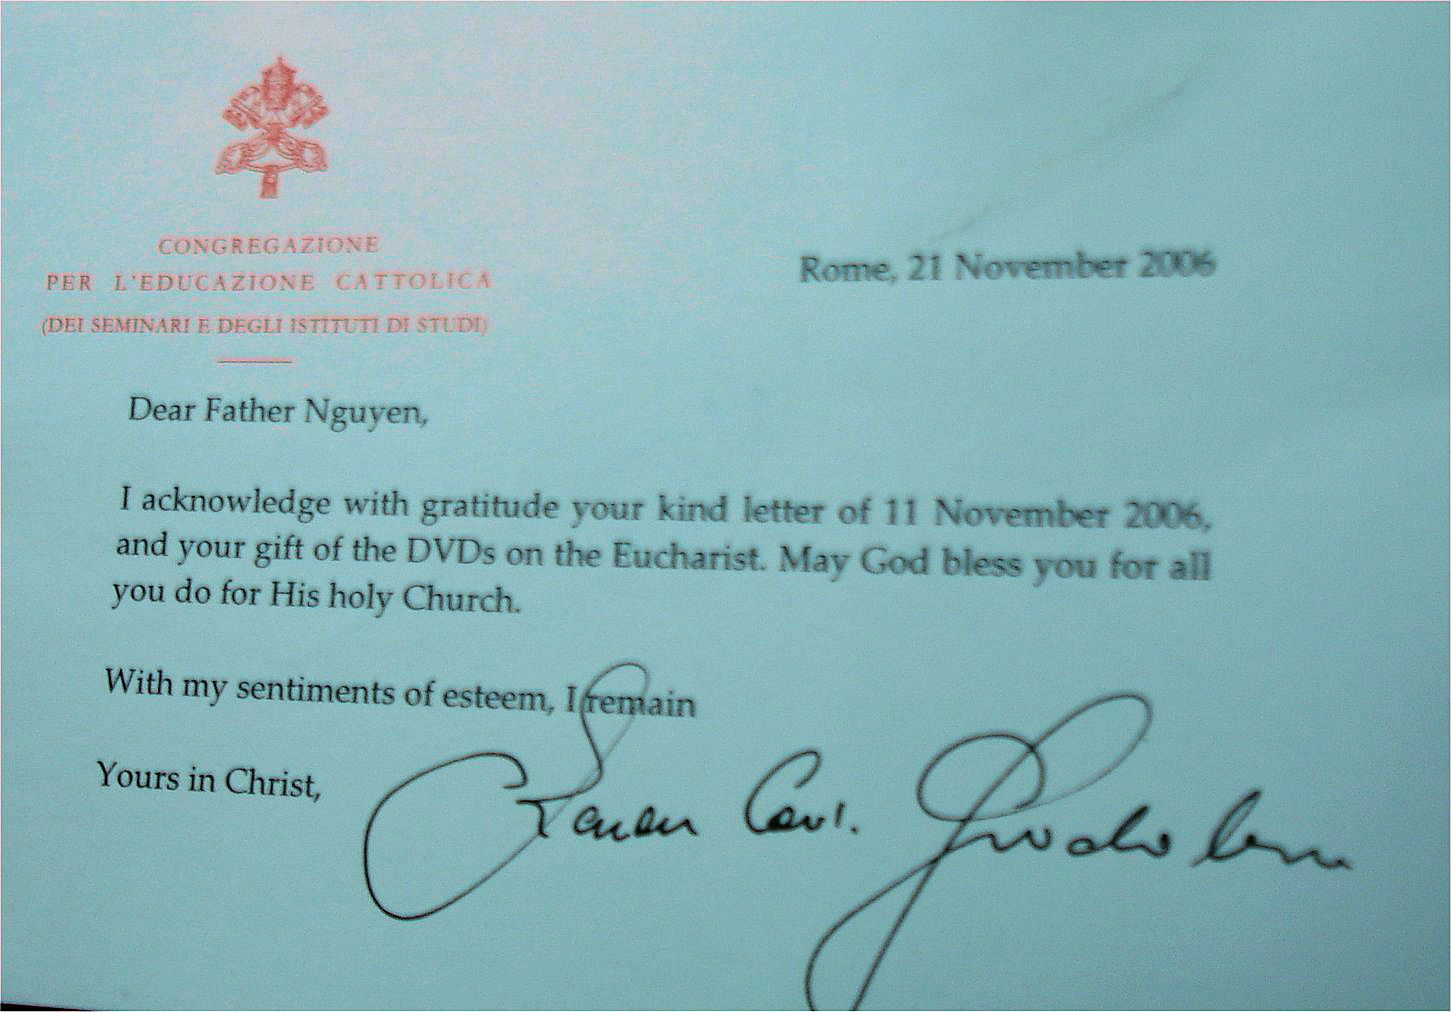 CONGREGAZIONE
PER L'EDUCAZIONE CATTOLICA
(DEI SEMINARI E DEGLI ISTITUTI DI STUDI)
Rome, 21 November 2006
Dear Father Nguyen,
I acknowledge with gratitude your kind letter of 11 November 2006,
and your gift of the DVDs on the Eucharist. May God bless you for all
you do for His holy Church.
With my sentiments of esteem, I remain
Yours in Christ,
Zenon Card. Grocholewski